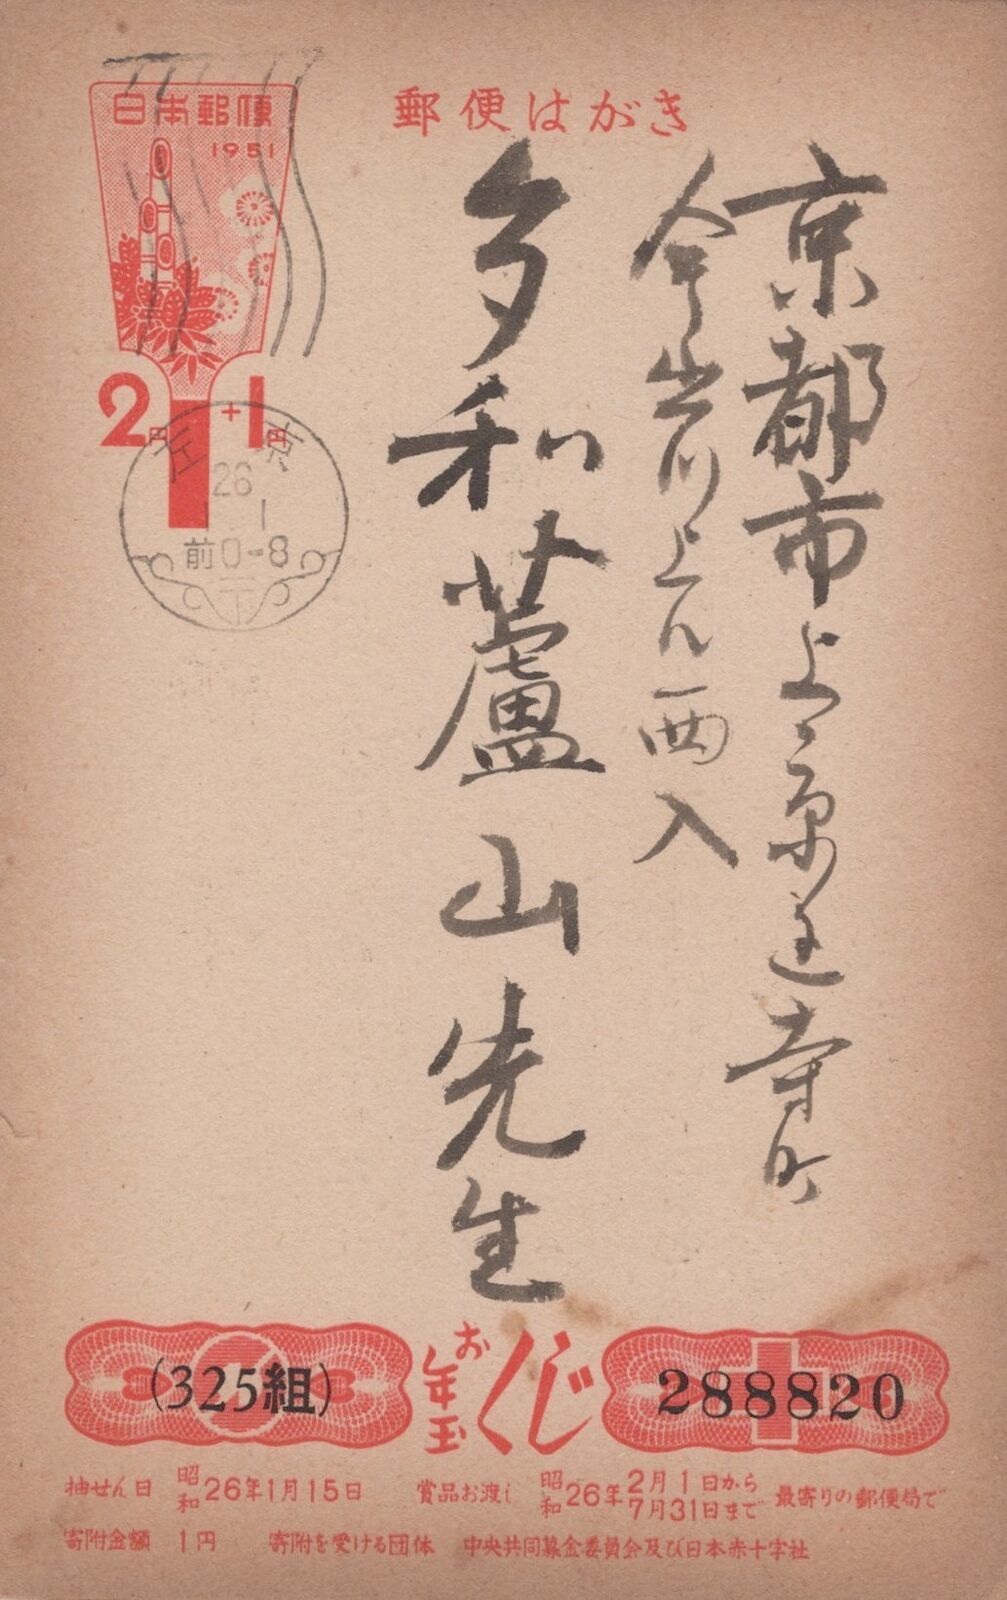 郵便はがき
日本郵便
1951
2円+1円
左京
26
1.1
前0-8
京都市上京区寺町
今出川上ル西入
多和蘆山先生
(325組)
お年玉くじ
288820
抽せん日 昭和26年1月15日 賞品お渡し 昭和26年2月1日から7月31日まで 最寄りの郵便局で
寄附金額 1円 寄附を受ける団体 中央共同募金委員会及び日本赤十字社